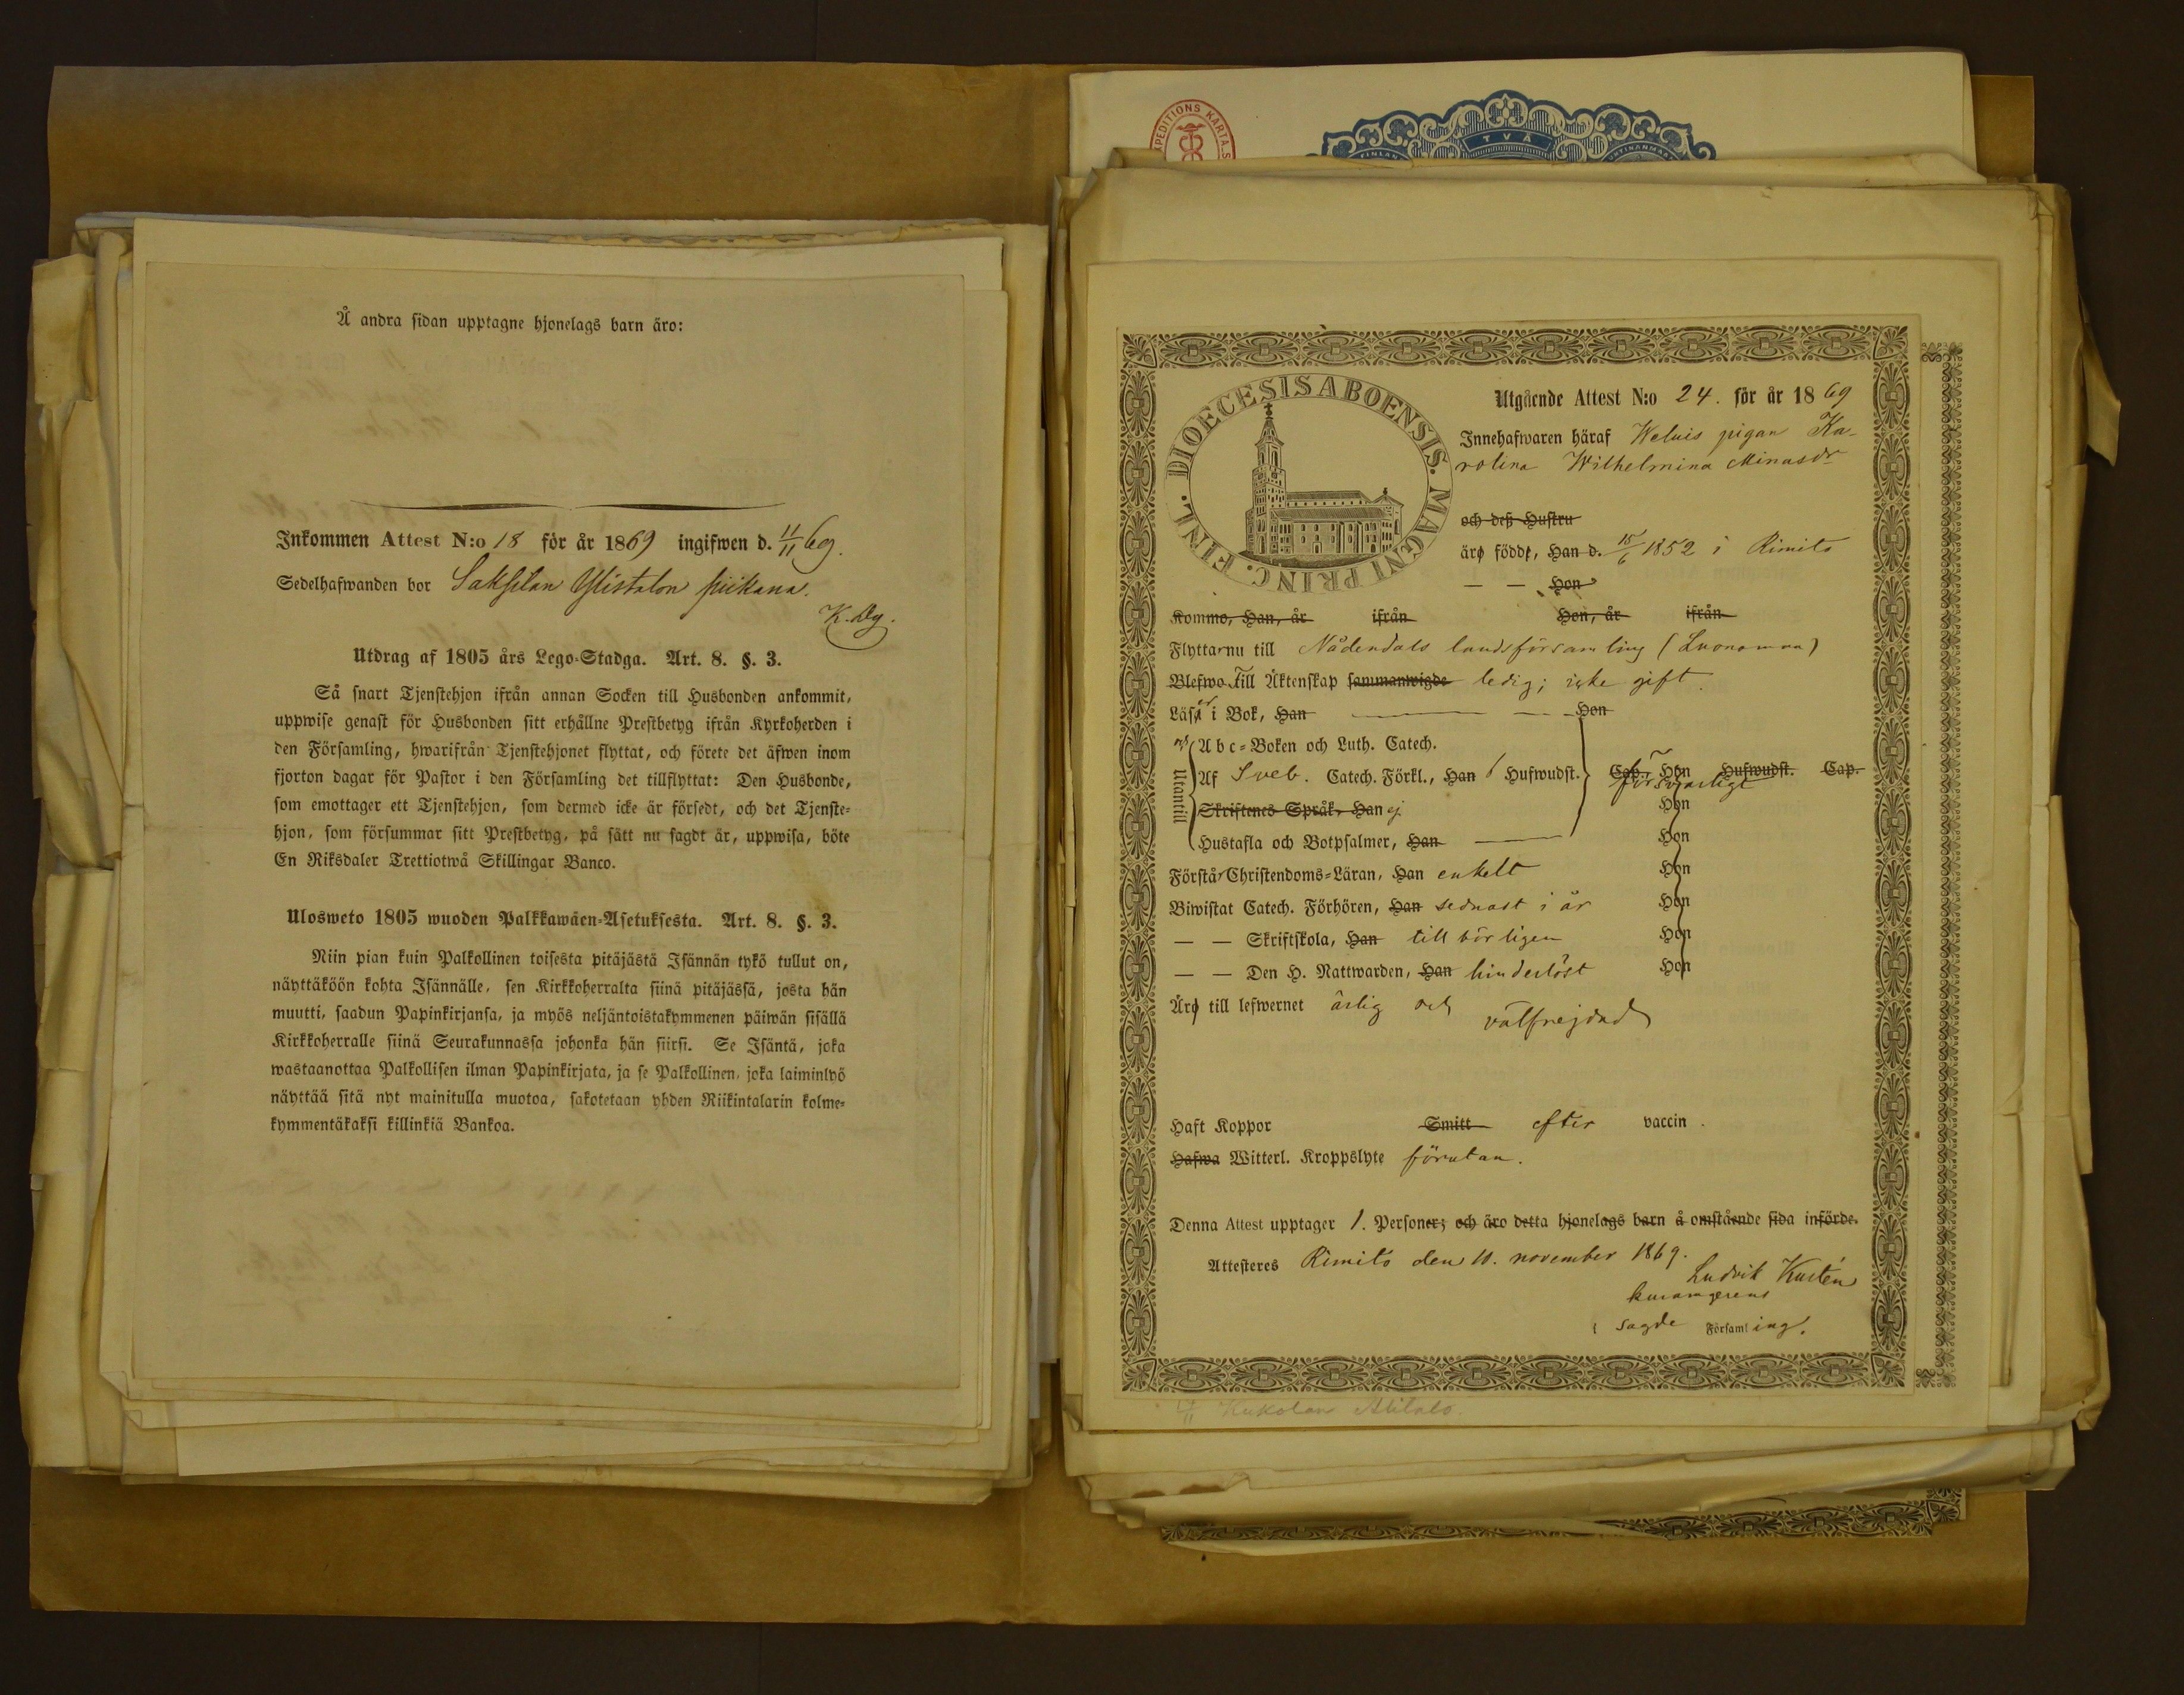 Å andra sidan upptagne hjonelags barn äro:
Inkommen Attest N:o 18 för år 1869 ingifwen d. 11/11 69.
Sedelhafwanden bor Saksilan Ylistalon piikana.
Utdrag af 1805 års Lego-Stadga. Art. 8. §. 3.
Så snart Tjenstehjon ifrån annan Socken till Husbonden ankommit,
uppwise genast för Husbonden sitt erhållne Prestbetyg ifrån Kyrkoherden i
den Församling, hwarifrån Tjenstehjonet flyttat, och förete det äfwen inom
fjorton dagar för Pastor i den Församling det tillflyttat: Den Husbonde,
som emottager ett Tjenstehjon, som dermed icke är försedt, och det Tjenste-
hjon, som försummar sitt Prestbetyg, på sätt nu sagdt är, uppwisa, böte
En Riksdaler Trettiotwå Skillingar Banco.
Ulosweto 1805 wuoden Palkkawäen-Asetuksesta. Art. 8. §. 3.
Niin pian kuin Palkollinen toisesta pitäjästä Isännän tykö tullut on,
näyttäköön kohta Isännälle, sen Kirkkoherralta siinä pitäjässä, josta hän
muutti, saadun Papinkirjansa, ja myös neljäntoistakymmenen päiwän sisällä
Kirkkoherralle siinä Seurakunnassa johonka hän siirsi. Se Isäntä, joka
wastaanottaa Palkollisen ilman Papinkirjata, ja se Palkollinen, joka laiminlyö
näyttää sitä nyt mainitulla muotoa, sakotetaan yhden Riikintalarin kolme-
kymmentäkaksi killinkiä Bankoa.
EXPEDITIONS KARTA
TVÅ
DIOECESIS ABOENSIS. MAGNI PRINC. FINL.
Utgående Attest N:o 24. för år 1869
Innehafwaren häraf Weluis pigan Ka-
rolina Wilhelmina Minasdr
och deß Hustru
äro födde, Han d. 15/6 1852 i Rimito
— — Hon
Kommo, Han, år ifrån Hon, år ifrån
Flyttar nu till Nådendals landsförsamling (Luonomaa)
Blefwo Till Äktenskap sammanwigde ledig; icke gift.
Läser i Bok, Han — — Hon
Utantill
Abc-Boken och Luth. Catech.
Af Sveb. Catech. Förkl., Han 6 Hufwudst. Cap. Hon Hufwudst. Cap.
försvarligt
Skriftenes Språk, Han ej Hon
Hustafla och Botpsalmer, Han — Hon
Förstår Christendoms-Läran, Han enkelt Hon
Biwistat Catech. Förhören, Han sednast i år Hon
— — Skriftskola, Han tillbörligen Hon
— — Den H. Nattwarden, Han hinderlöst Hon
Äro till lefwernet ärlig och välfrejdad
Haft Koppor Smitt efter vaccin.
Hafwa Witterl. Kroppslyte förutan.
Denna Attest upptager 1. Personer; och äro detta hjonelags barn å omstående sida införde.
Attesteres Rimito den 10. november 1869.
Ludvik Kustén
i sagde Församling.
11/11 Kukolan Alitalo.